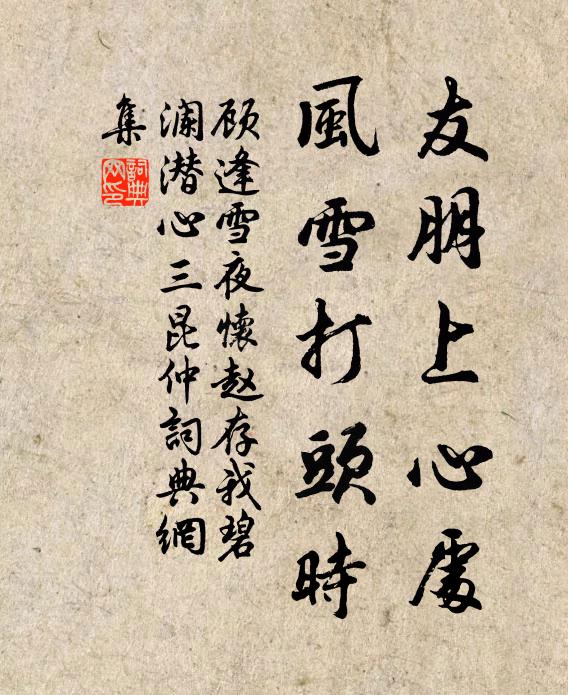 友朋上心處
風雪打頭時
顾逢雪夜懷赵存我碧
澜潜心三昆仲詞典網
集
詞典網印